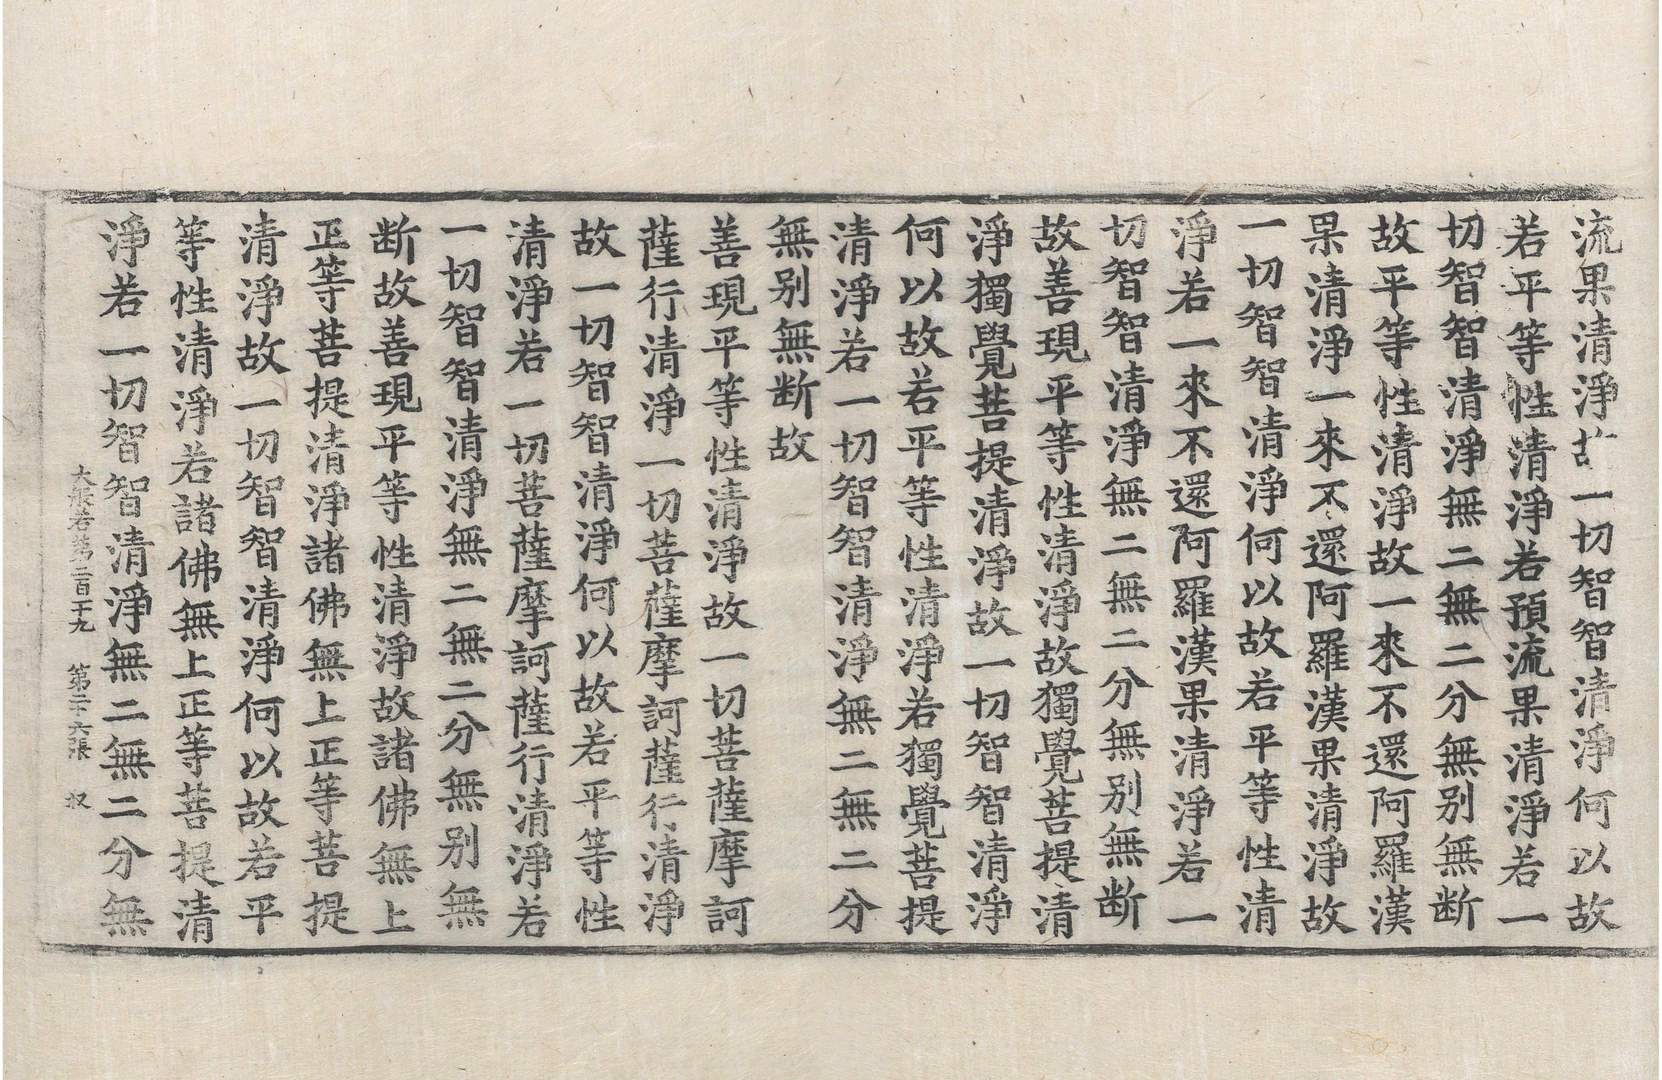 流果清淨故一切智智清淨何以故
若平等性清淨若預流果清淨若一
切智智清淨無二無二分無別無斷
故平等性清淨故一來不還阿羅漢
果清淨一來不還阿羅漢果清淨故
一切智智清淨何以故若平等性清
淨若一來不還阿羅漢果清淨若一
切智智清淨無二無二分無別無断
故善現平等性清淨故獨覺菩提清
淨獨覺菩提清淨故一切智智清淨
何以故若平等性清淨若獨覺菩提
清淨若一切智智清淨無二無二分
無别無断故
善現平等性清淨故一切菩薩摩訶
薩行清淨一切菩薩摩訶薩行清淨
故一切智智清淨何以故若平等性
清淨若一切菩薩摩訶薩行清淨若
一切智智清淨無二無二分無别無
断故善現平等性清淨故諸佛無上
正等菩提清淨諸佛無上正等菩提
清淨故一切智智清淨何以故若平
等性清淨若諸佛無上正等菩提清
淨若一切智智清淨無二無二分無
大般若第二百十九 第二十六張